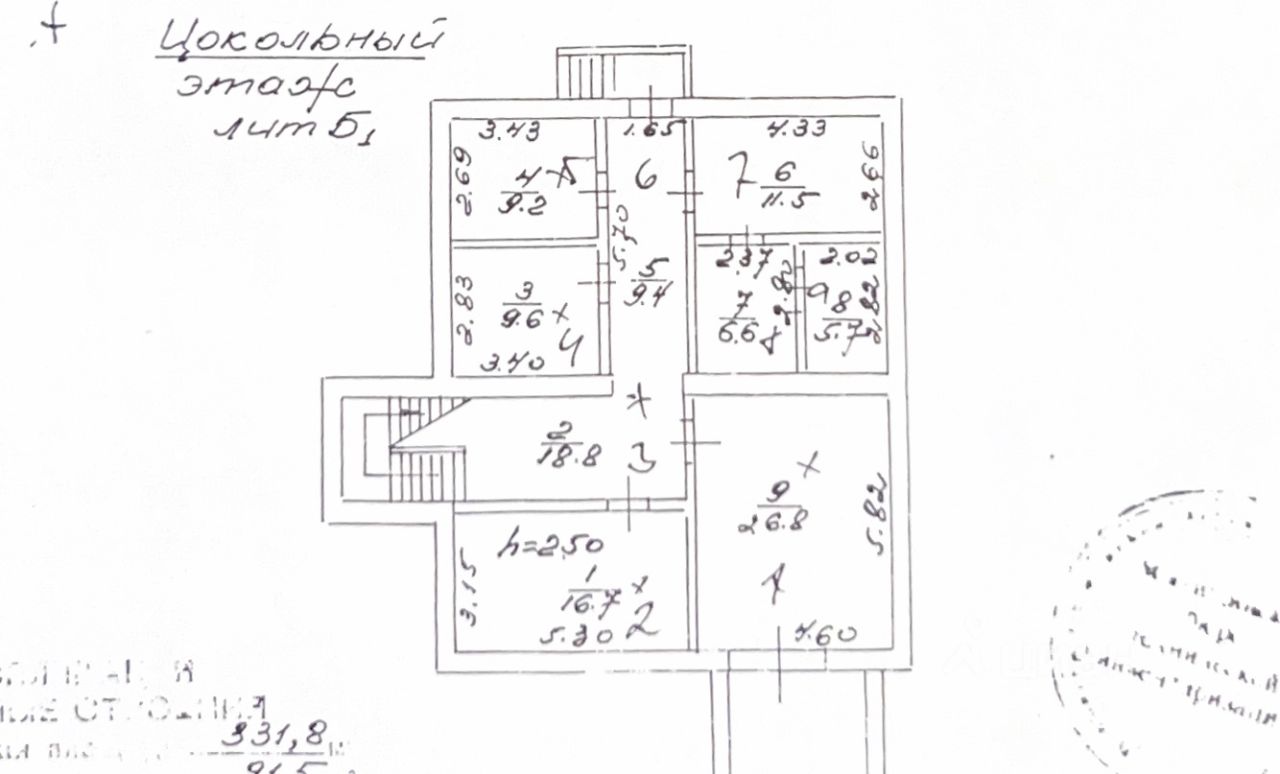 Цокольный
этаж
лит Б₁
3.43
1.65
4.33
2.69
4
9.2
5
6
7
6
11.5
2.66
5.70
5
9.4
2.37
2.02
2.83
3
9.6
4
3.40
7
6.6
2.82
9
8
5.7
2.82
2
18.8
3
9
26.8
5.82
h=2.50
1
16.7
2
3.15
5.30
1
4.60
331,8
91,5